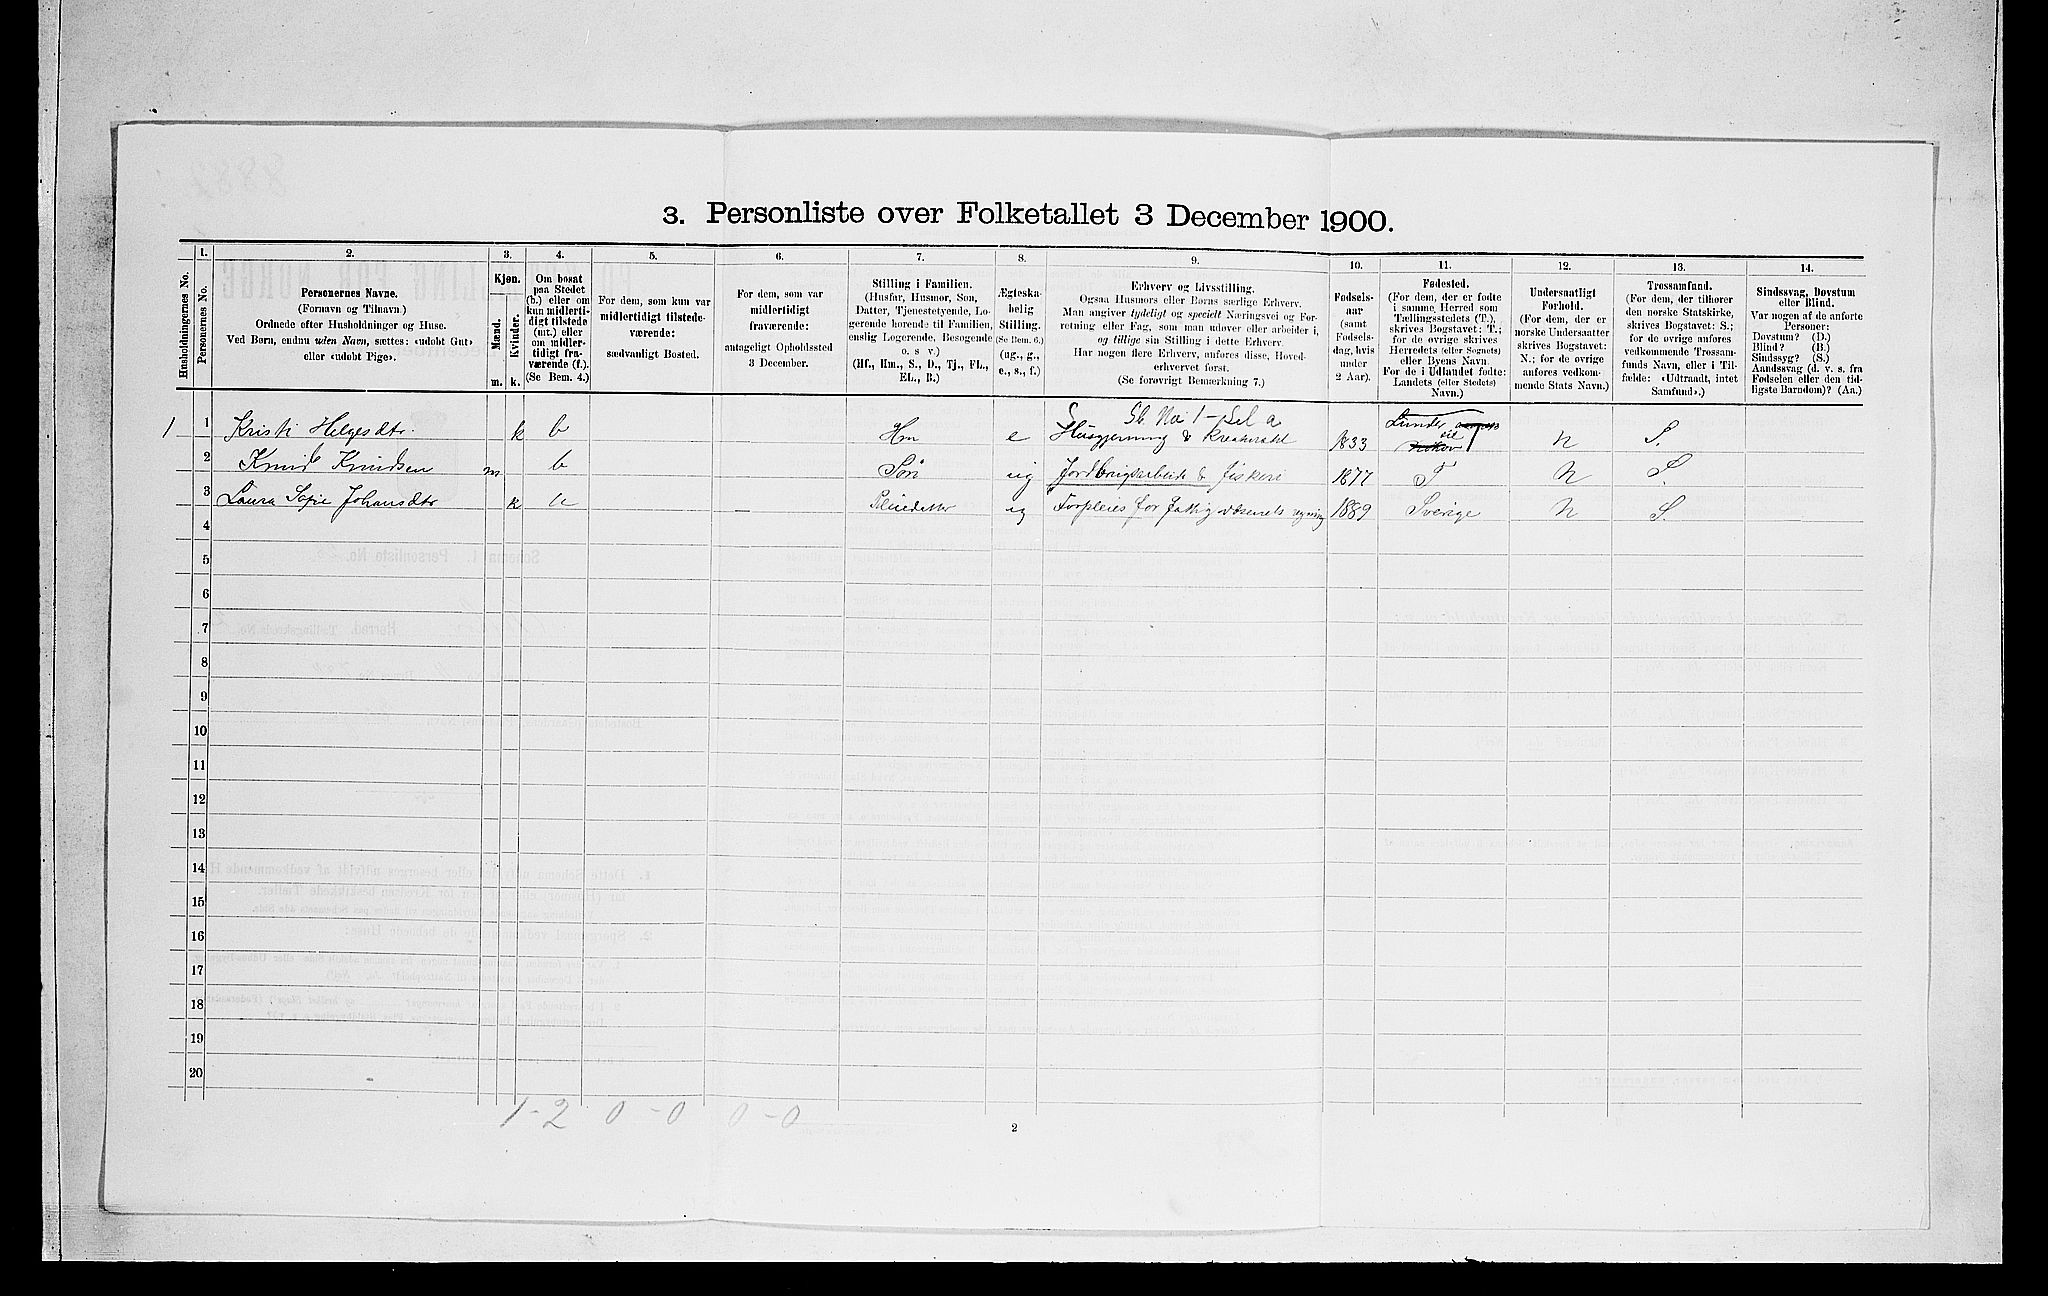 3. Personliste over Folketallet 3 December 1900.
1. 2. 3. 4. 5. 6. 7. 8. 9. 10. 11. 12. 13. 14.
Husholdningernes No.
Personernes No.
Personernes Navne.
(Fornavn og Tilnavn.)
Ordnede efter Husholdninger og Huse.
Ved Børn, endnu uden Navn, sættes: «udøbt Gut»
eller «udøbt Pige».
Kjøn.
Mænd.
Kvinder.
m. k.
Om bosat
paa Stedet
(b.) eller om
kun midlerti-
digt tilstede
(mt.) eller
om midler-
tidigt fra-
værende (f.).
(Se Bem. 4.)
For dem, som kun var
midlertidigt tilstede-
værende:
sædvanligt Bosted.
For dem, som var
midlertidigt
fraværende:
antageligt Opholdssted
3 December.
Stilling i Familien.
(Husfar, Husmor, Søn,
Datter, Tjenestetyende, Lo-
gerende hørende til Familien,
enslig Logerende, Besøgende
o. s. v.)
(Hf., Hm., S., D., Tj., FL.,
EL., B.)
Ægteska-
belig
Stilling.
(Se Bem. 6.)
(ug., g.,
e., s., f.)
Erhverv og Livsstilling.
Ogsaa Husmors eller Børns særlige Erhverv.
Man angiver tydeligt og specielt Næringsvei og For-
retning eller Fag, som man udøver eller arbeider i,
og tillige sin Stilling i dette Erhverv.
Har nogen flere Erhverv, anføres disse, Hoved-
erhvervet først.
(Se forøvrigt Bemerkning 7.)
Fødsels-
aar
(samt
Fødsels-
dag, hvis
under
2 Aar).
Fødested.
(For dem, der er fødte
i samme Herred som
Tællingsstedets (T.),
skrives Bogstavet: T.;
for de øvrige skrives
Herredets (eller Sognets)
eller Byens Navn.
For de i Udlandet fødte:
Landets (eller Stedets)
Navn.)
Undersaatligt
Forhold.
(For dem, der er
norske Undersaatter
skrives Bogstavet:
N.; for de øvrige
anføres vedkom-
mende Stats Navn.)
Trossamfund.
(For dem, der tilhører
den norske Statskirke,
skrives Bogstavet: S.;
for de øvrige anføres
vedkommende Trossam-
funds Navn, eller i Til-
fælde: «Udtraadt, intet
Samfund».)
Sindssvag, Døvstum
eller Blind.
Var nogen af de anførte
Personer:
Døvstum? (D.)
Blind? (B.)
Sindssyg? (S.)
Aandssvag (d. v. s. fra
Fødselen eller den tid-
ligste Barndom)? (Aa.)
1 1 Kristi Helgesdtr. k b Hm e Husgjerning & Kreaturstel 1833 T N S.
2 Knud Knudsen m b Søn ug Jordbrugsarbeide & fiskeri 1877 T N S.
3 Laura Sofie Johansdtr k b — Pleiedatter ug Forpleies for fattigvæsenets regning 1889 Sverige N S.
4
5
6
7
8
9
10
11
12
13
14
15
16
17
18
19
20
1-2 0-0 0-0
2